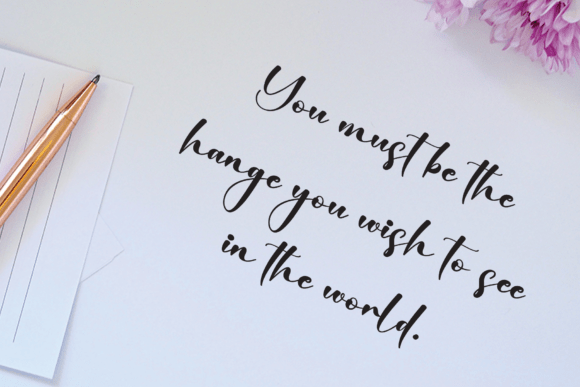 You must be the
hange you wish to see
in the world.